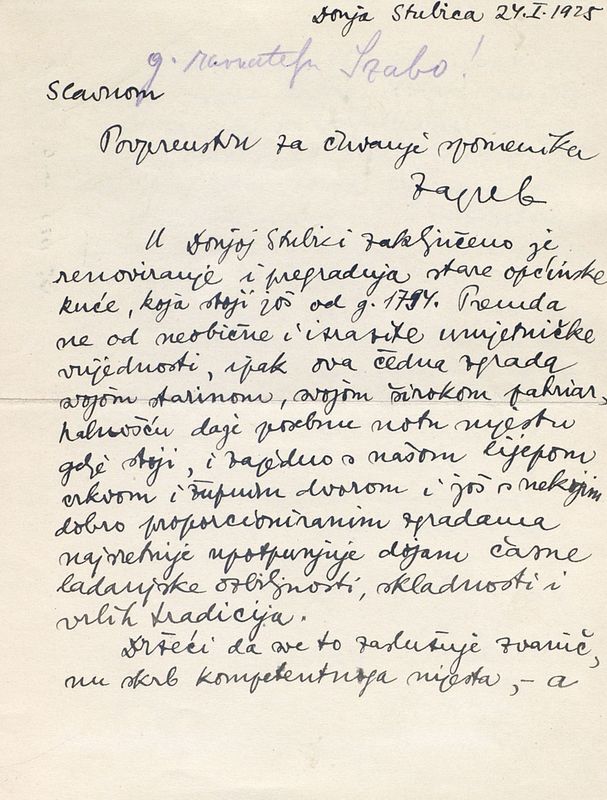 Donja Stubica 24.I.1925
g. ravnatelju Szabo!
Slavnom
Povjerenstvu za čuvanje spomenika
Zagreb
U Donjoj Stubici zaključeno je
renoviranje i pregradnja stare općinske
kuće, koja stoji još od g. 1794. Premda
ne od neobične i izrazite umjetničke
vrijednosti, ipak ova čedna zgrada
svojom starinom, svojom širokom patriar,
halnošću daje posebnu notu mjestu
gdje stoji, i zajedno s našom lijepom
crkvom i župnim dvorom i još s nekojim
dobro proporcioniranim zgradama
najsretnije upotpunjuje dojam časne
ladanjske ozbiljnosti, skladnosti i
vrlih tradicija.
Držeći da sve to zaslužuje zvanič,
nu skrb kompetentnoga mjesta, – a